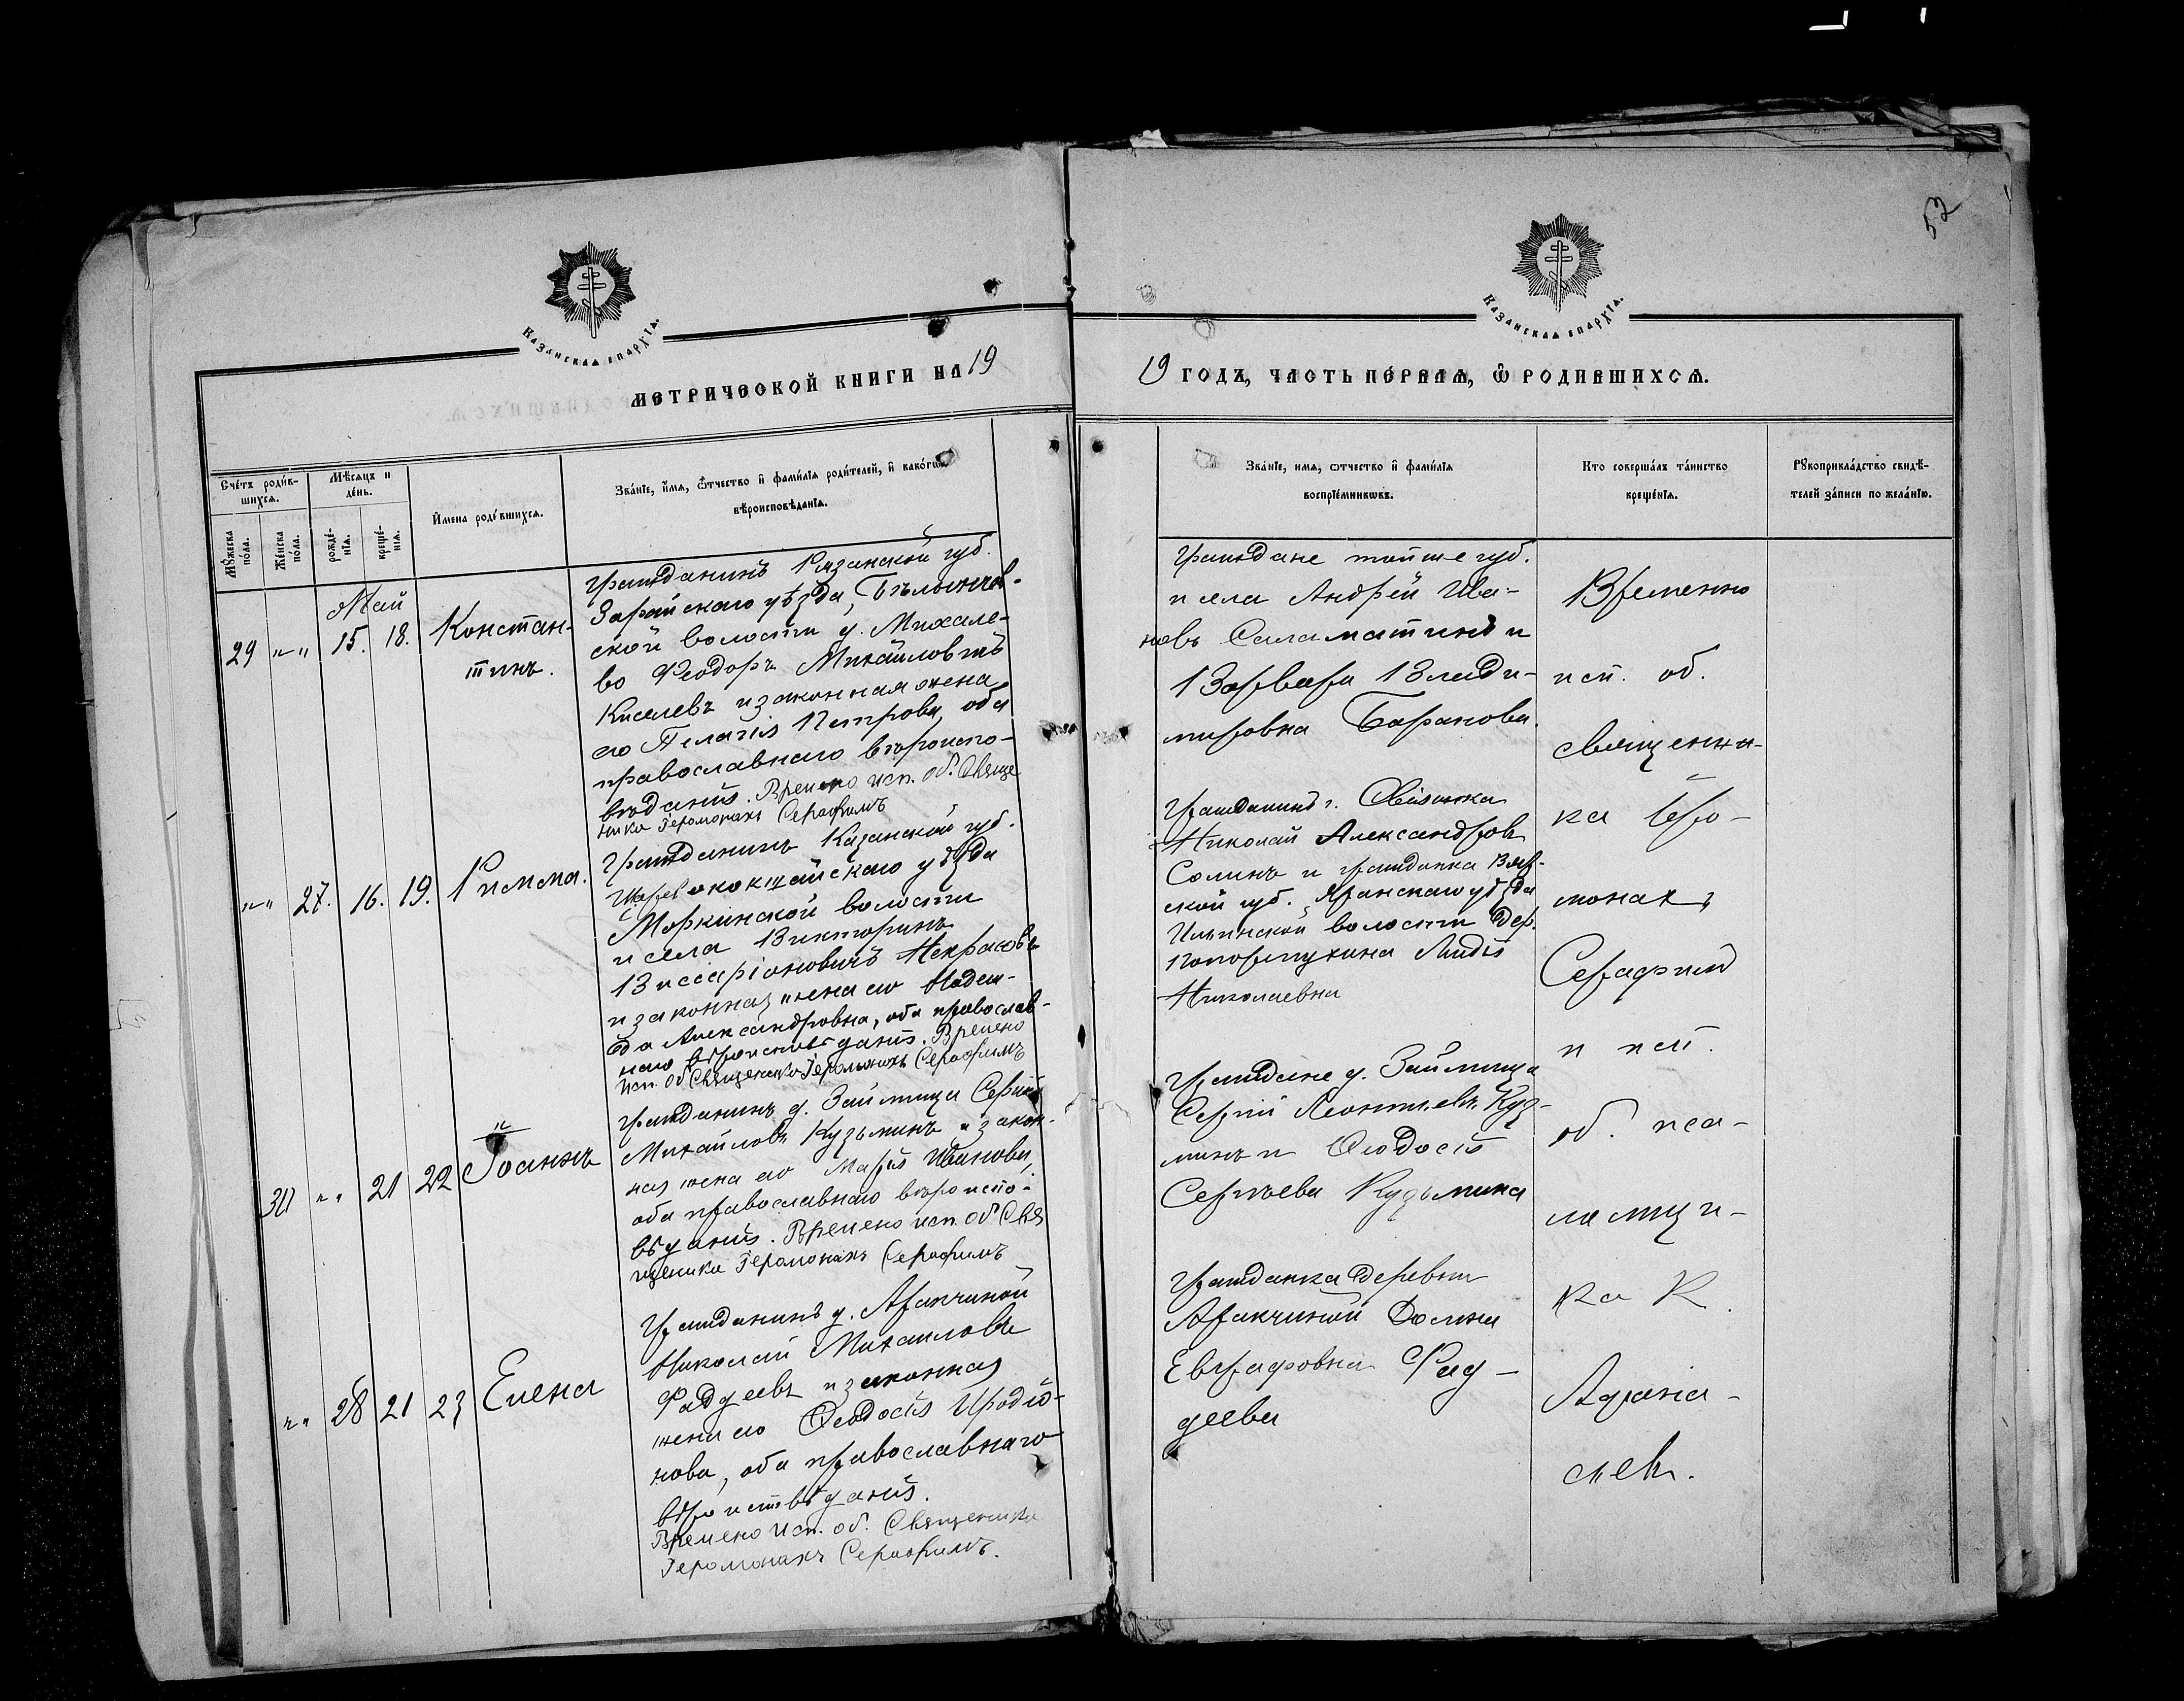 52
Казанская епархїя.
Казанская епархїя.
МЕТРИЧЕСКОЙ КНИГИ НА 19
19 ГОДЪ, ЧАСТЬ ПЕ́РВАЯ, Ѿ РОДИВШИХСЯ.
Счéтъ роди́в-
шихся.
Мѣсяцъ и
де́нь.
Мꙋ́жеска
по́ла.
Же́нска
по́ла.
рожде́-
нїя.
креще́-
нїя.
И́мена роди́вшихся.
Зва́нїе, и́мя, ѻ́тчество и҆ фами́лїя роди́телей, и҆ како́гѡ
вѣроисповѣ́данїя.
Зва́нїе, имя, ѻтчество и҆ фами́лїя
воспрїе́мникѡвъ.
Кто совершáлъ та́инство
креще́нїя.
Рꙋкоприкла́дство свидѣ́-
телей за́писи по жела́нїю.
Май
29 " " 15. 18. Констан-
тинъ.
Гражданинъ Рязанской губ.
Зарайскаго уѣзда,
ской волости д. Михале-
во Феодоръ Михайловичъ
Киселевъ и законная жена
его Пелагія Петрова, оба
православнаго вѣроиспо-
вѣданія. Времено исп. об. Свяще
ника Іеромонахъ Серафимъ
Граждане тойже губ.
и села Андрей Ива-
новъ Саламатинъ и
Варвара Влади-
мировна Баранова.
" " 27. 16. 19. Римма.
Гражданинъ Казанской губ.
Царевококшайскаго уѣзда
Моркинской волости
и села Викторинъ
Виссаріоновичъ Некрасовъ
и законная жена его Надеж-
да Александровна, оба православ-
наго вѣроисповѣданія. Времено
исп. об Священика Іеромонахъ Серафимъ
Гражданинъ г. Свіяжска
Николай Александровъ
Солинъ и гражданка Вят-
ской губ. Яранскаго уѣзда
Ильинской волости дер.
Лидія
Николаевна
30 " " 21 22 Іоаннъ
Гражданинъ д. Займища Сергій
Михайловъ Кузьминъ и закон-
ная жена его Марія Иванова,
оба православнаго вѣроиспо-
вѣданія. Времено исп. об Свя
щеника Іеромонахъ Серафимъ
Граждане д. Займища
Сергій Леонтьевъ Кузь-
минъ и Феодосія
Сергѣева Кузьмина
" " 28 21 23 Елена
Гражданинъ д. Аракчиной
Николай Михаиловъ
Фаддеевъ и законная
жена его Феодосія Иродіо-
нова, оба православнаго
вѣроисповѣданія.
Времено исп. об. Священика
Іеромонахъ Серафимъ.
Гражданка деревни
Аракчиной Домна
Евграфовна Фад-
деева
Временно
исп. об.
священни-
ка Іеро-
монахъ
Серафимъ
и исп.
об. пса-
ломщи-
ка К.
Афана-
сьевъ.